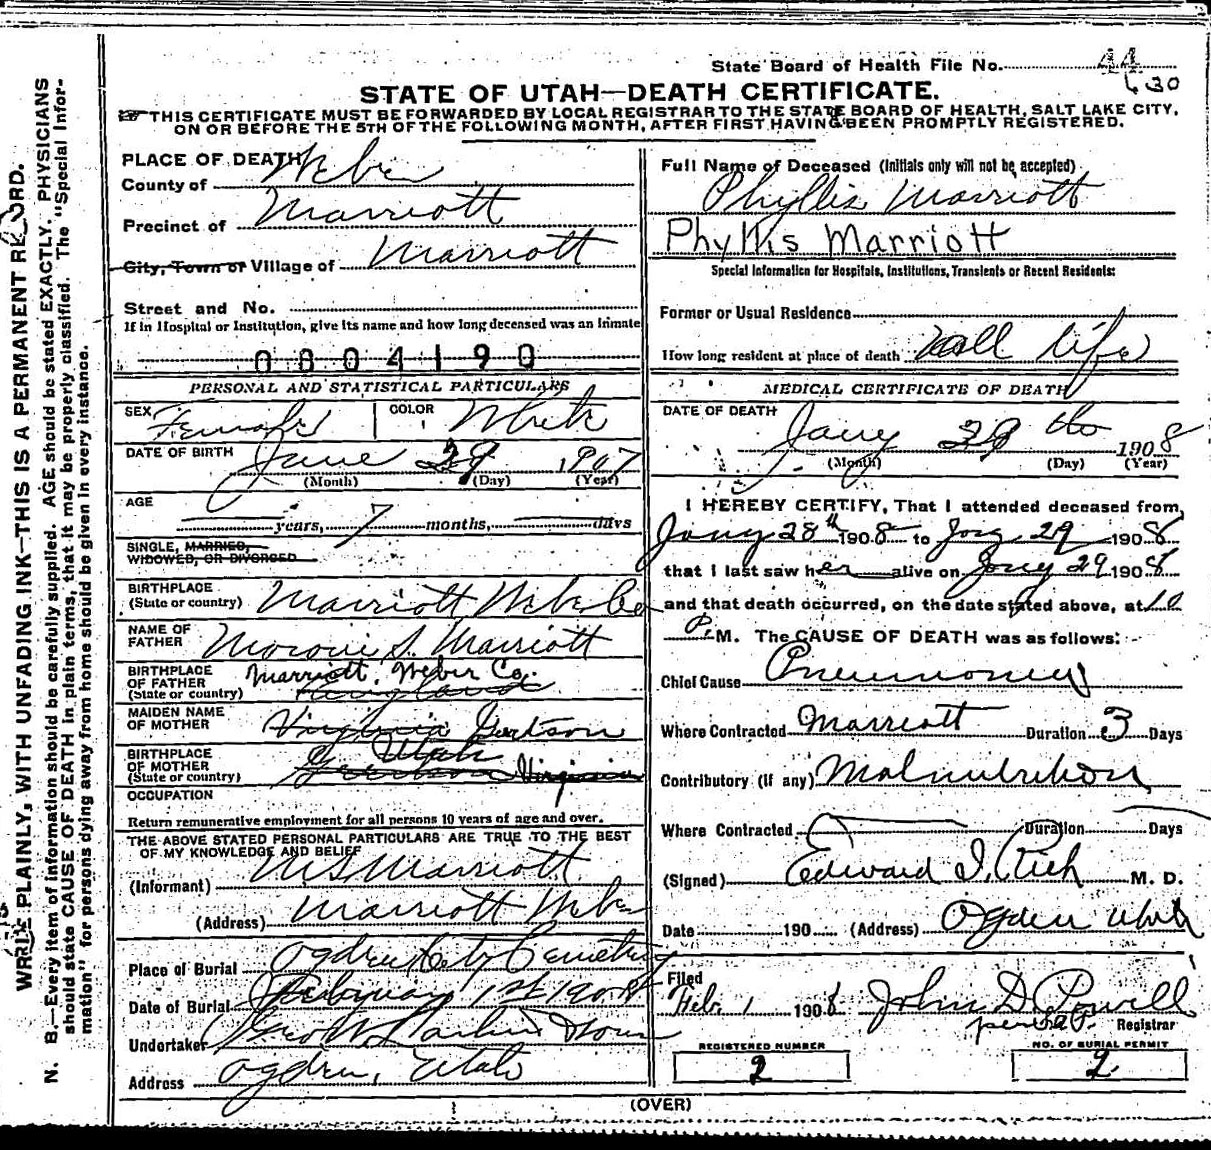 State Board of Health File No. 44
630
STATE OF UTAH—DEATH CERTIFICATE.
THIS CERTIFICATE MUST BE FORWARDED BY LOCAL REGISTRAR TO THE STATE BOARD OF HEALTH, SALT LAKE CITY,
ON OR BEFORE THE 5TH OF THE FOLLOWING MONTH, AFTER FIRST HAVING BEEN PROMPTLY REGISTERED.
PLACE OF DEATH
County of Weber
Precinct of Marriott
City, Town or Village of Marriott
Street and No.
If in Hospital or Institution, give its name and how long deceased was an inmate
0004190
PERSONAL AND STATISTICAL PARTICULARS
SEX Female COLOR White
DATE OF BIRTH June 29 1907
(Month) (Day) (Year)
AGE
years, 7 months, days
SINGLE, MARRIED,
WIDOWED, OR DIVORCED
BIRTHPLACE
(State or country) Marriott Weber Co
NAME OF
FATHER Moroni S. Marriott
BIRTHPLACE
OF FATHER Marriott, Weber Co.
(State or country) England
MAIDEN NAME
OF MOTHER Virginia
BIRTHPLACE
OF MOTHER Utah
(State or country) Virginia
OCCUPATION
Return remunerative employment for all persons 10 years of age and over.
THE ABOVE STATED PERSONAL PARTICULARS ARE TRUE TO THE BEST
OF MY KNOWLEDGE AND BELIEF
(Informant) M S Marriott
(Address) Marriott Weber
Place of Burial Ogden City Cemetery
Date of Burial February 1st 1908
Undertaker Geo W. Larkin & Sons
Address Ogden, Utah
Full Name of Deceased (Initials only will not be accepted)
Phyllis Marriott
Phyllis Marriott
Special Information for Hospitals, Institutions, Transients or Recent Residents:
Former or Usual Residence
How long resident at place of death all life
MEDICAL CERTIFICATE OF DEATH
DATE OF DEATH
Jany 29 1908
(Month) (Day) (Year)
I HEREBY CERTIFY, That I attended deceased from
Jany 28th 1908 to Jany 29 1908
that I last saw her alive on Jany 29 1908
and that death occurred, on the date stated above, at 10
P. M. The CAUSE OF DEATH was as follows:
Chief Cause Pneumonia
Where Contracted Marriott Duration 3 Days
Contributory (if any) Malnutrition
Where Contracted Duration Days
(Signed) Edward I. Rich M. D.
Date 190 (Address) Ogden Utah
Filed
Feb. 1 1908 John D Powell
Registrar
REGISTERED NUMBER
2
NO. OF BURIAL PERMIT
2
(OVER)
WRITE PLAINLY, WITH UNFADING INK—THIS IS A PERMANENT RECORD.
N. B.—Every item of information should be carefully supplied. AGE should be stated EXACTLY. PHYSICIANS
should state CAUSE OF DEATH in plain terms, that it may be properly classified. The "Special Infor-
mation" for persons dying away from home should be given in every instance.